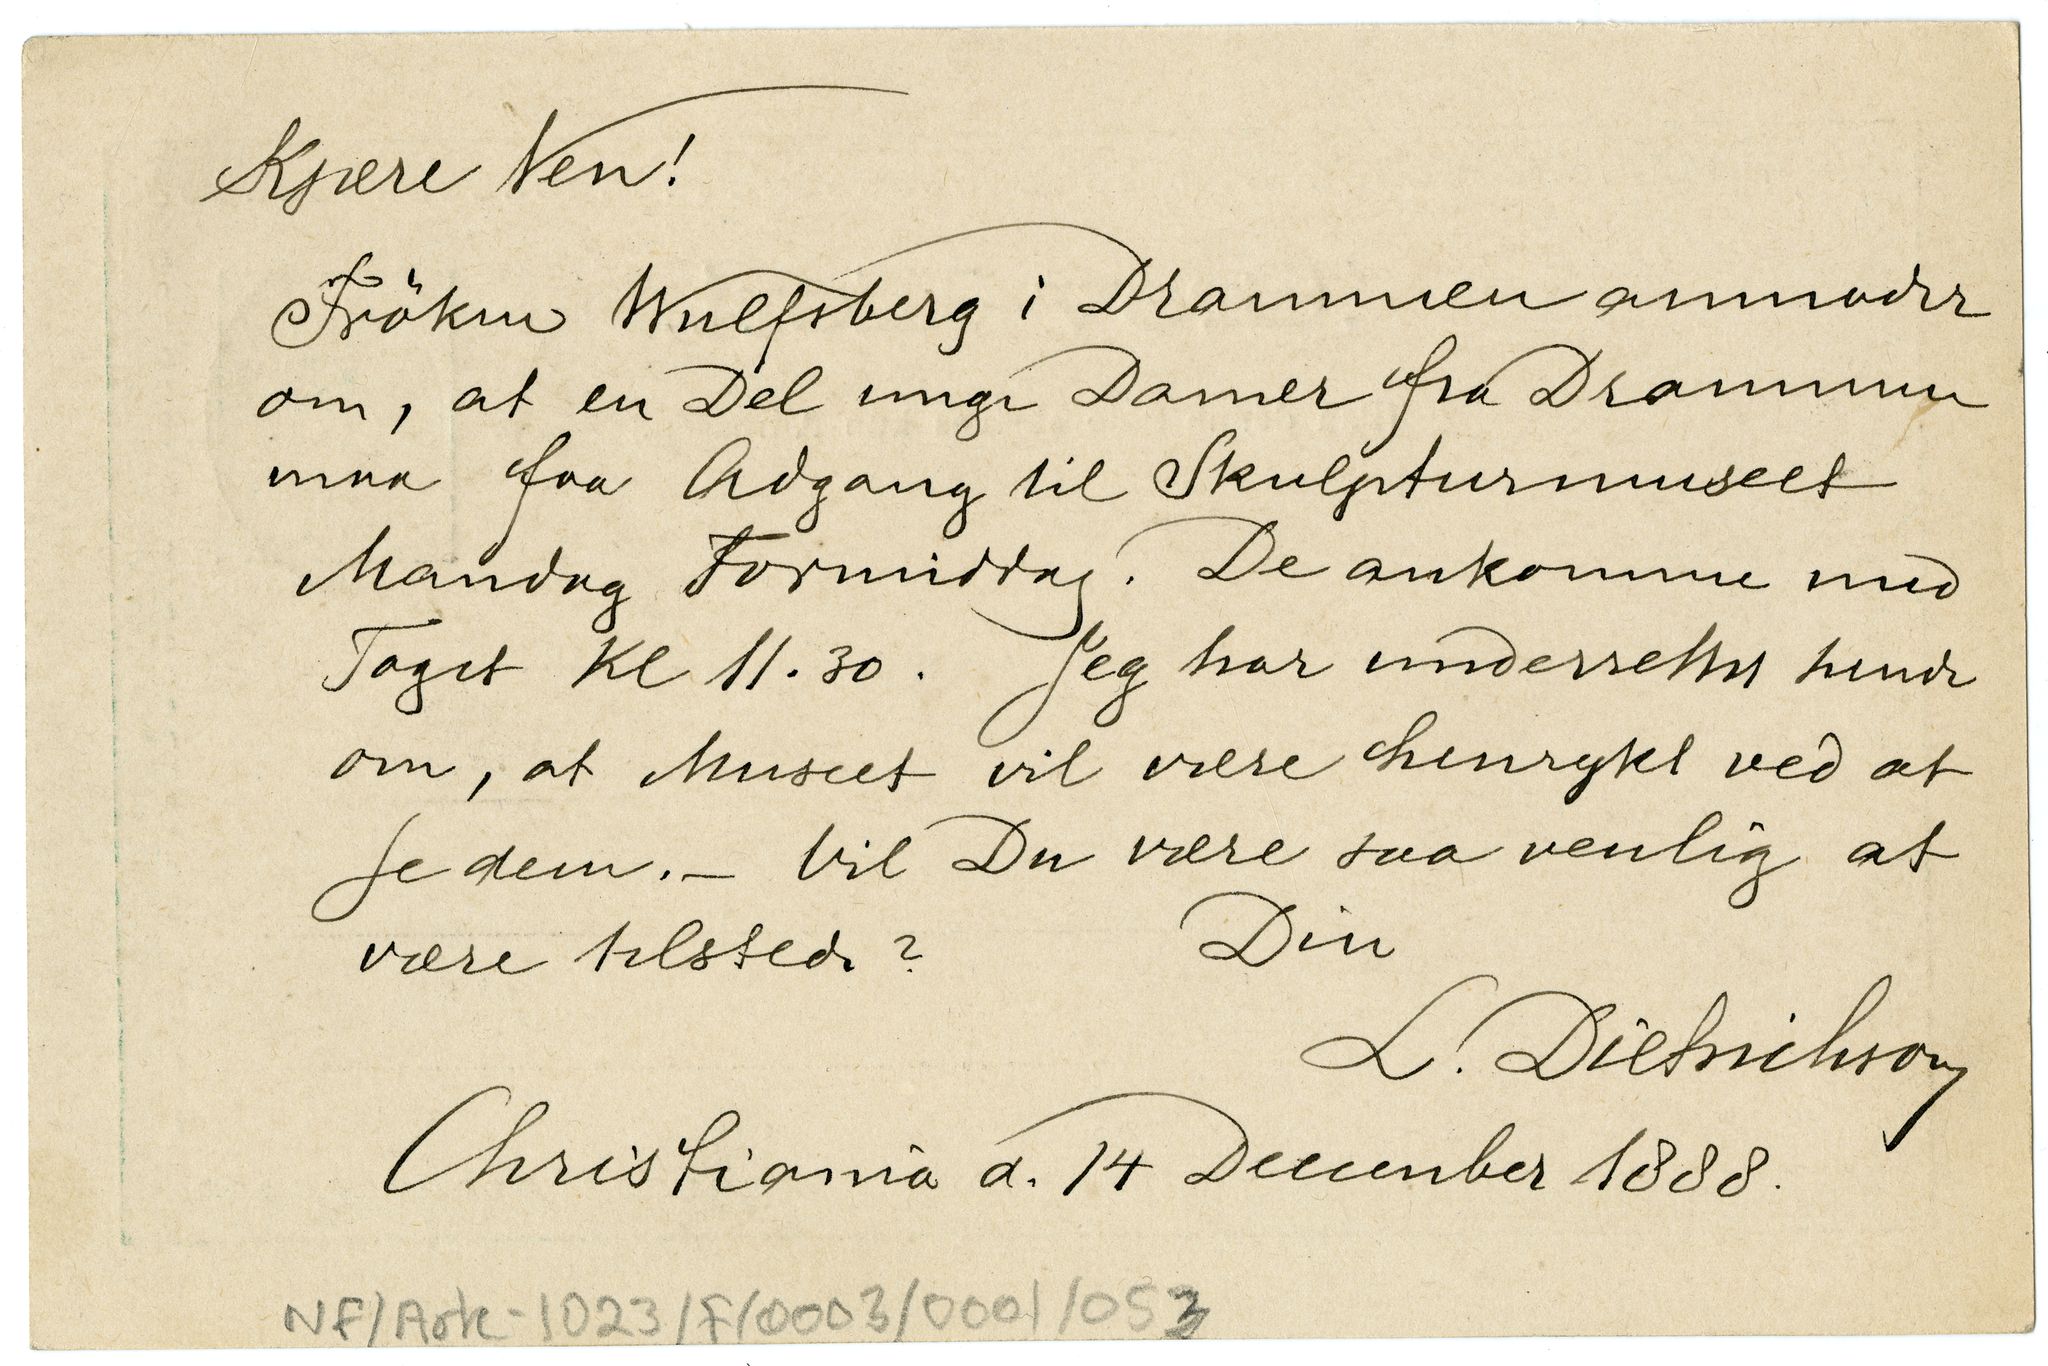 Kjære Ven!
Fröken Wulfsberg i Drammen anmoder
om, at en Del unge Damer fra Drammen
maa faa Adgang til Skulpturmuseet
Mandag Formiddag. De ankomme med
Toget Kl 11.30. Jeg har underrettet hende
om, at Museet vil være henrykt ved at
se dem. – Vil Du være saa venlig at
være tilstede? Din
L. Dietrichson
Christiania d. 14 December 1888.
NF/Ark-1023/F/0003/0001/053